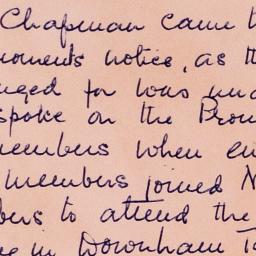 Chapman came t
moments notice, as th
nged for was una
spoke on the Prom
members when en
members joined N
bers to attend the
in Downham T